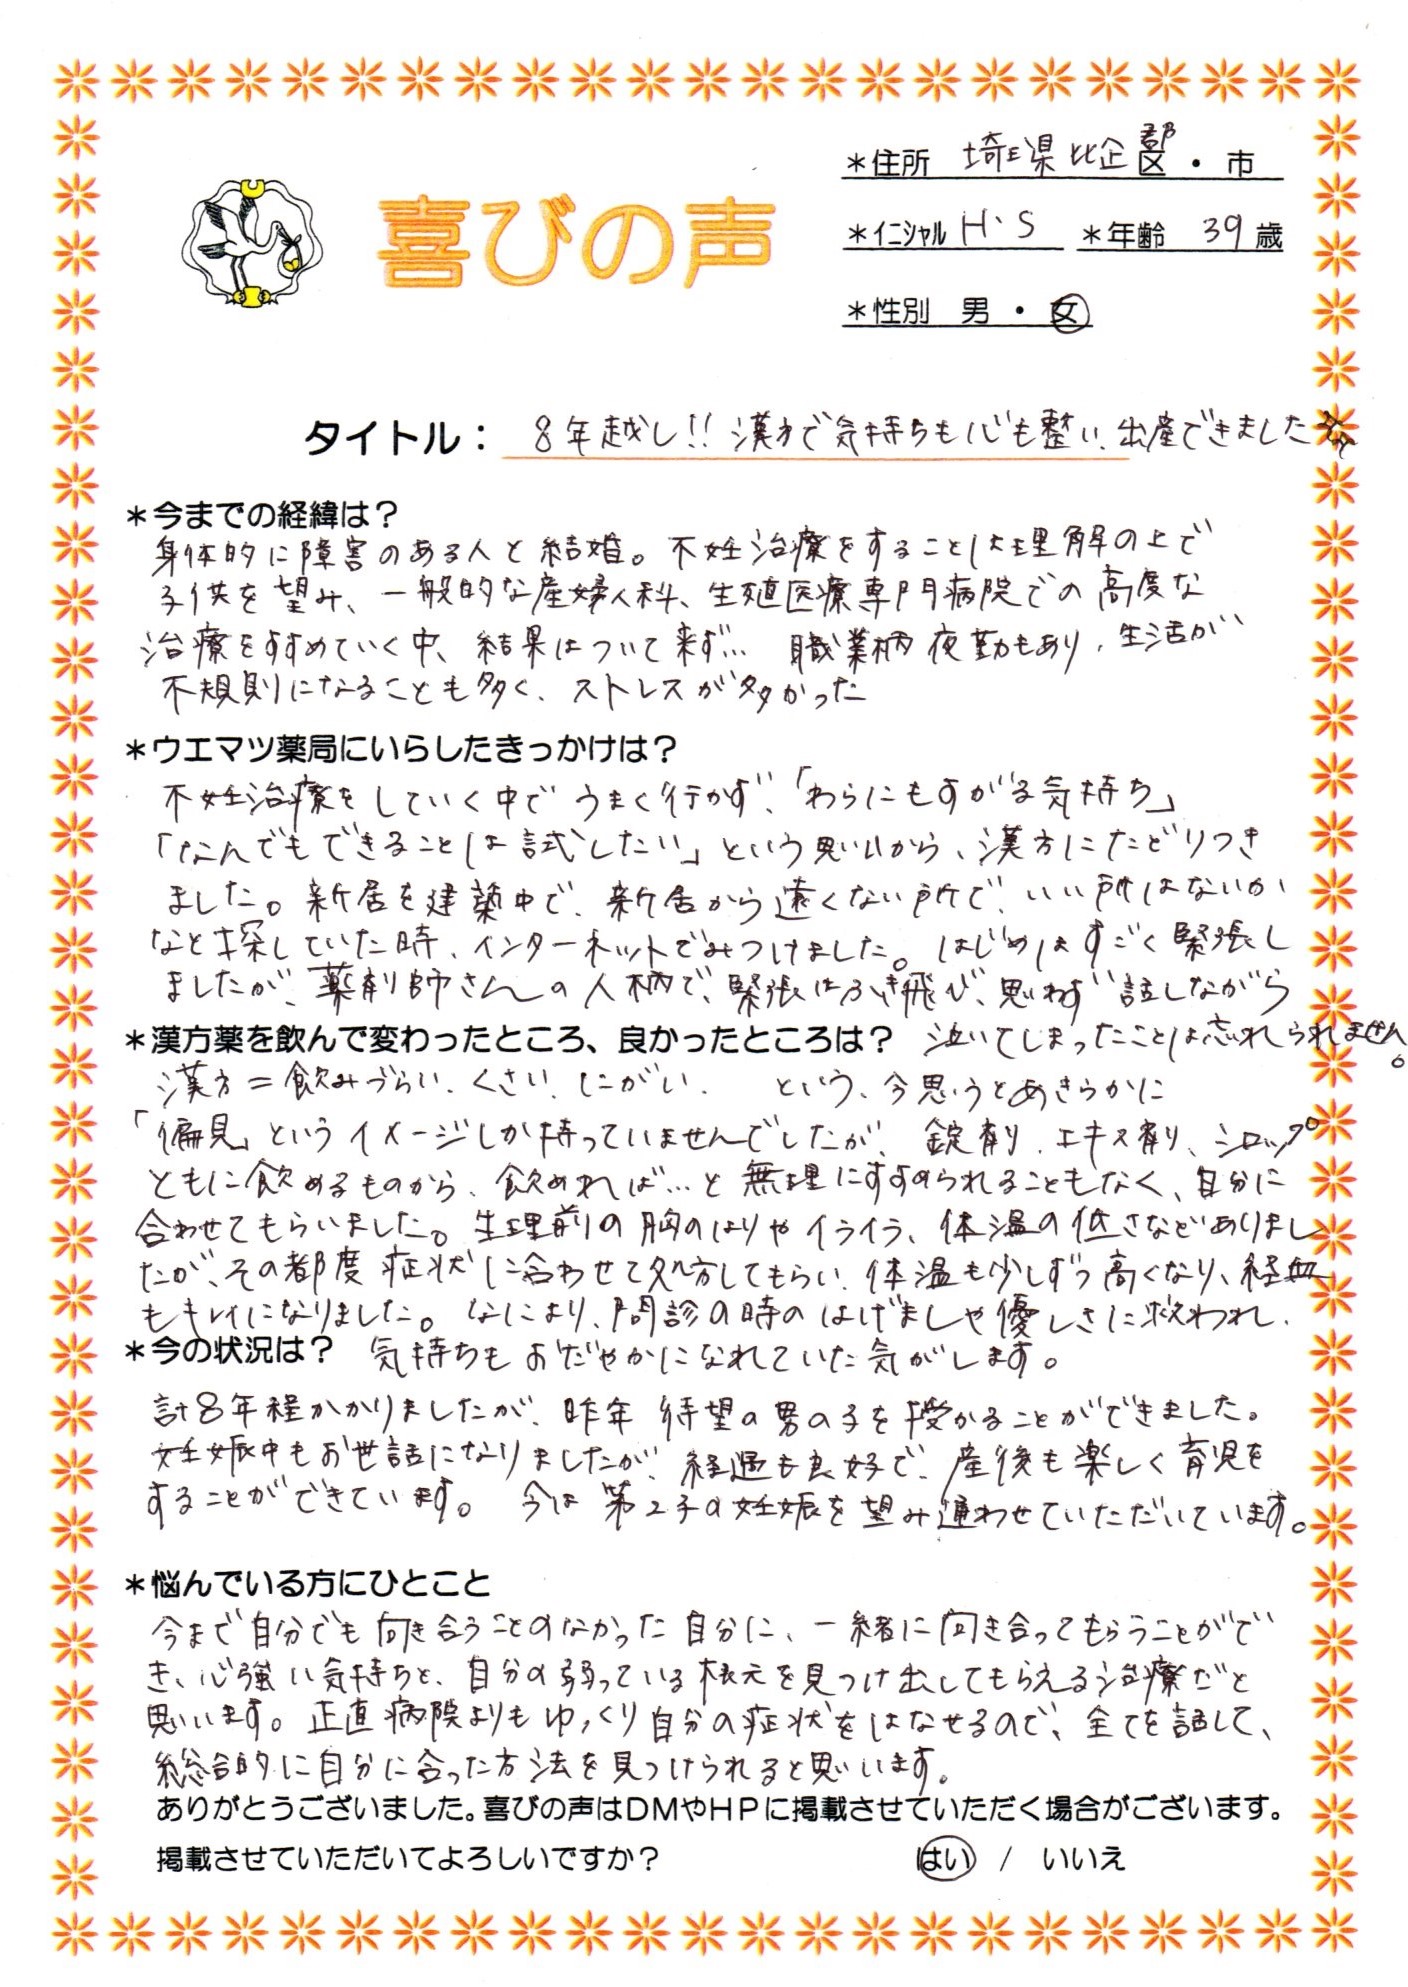 *住所 埼玉県比企郡 区・市
喜びの声
*イニシャル H・S *年齢 39 歳
*性別 男・女
タイトル: 8年越し!! 漢方で気持ちも心も整い、出産できました
*今までの経緯は?
身体的に障害のある人と結婚。不妊治療をすることは理解の上で
子供を望み、一般的な産婦人科、生殖医療専門病院での高度な
治療をすすめていく中、結果はついて来ず… 職業柄夜勤もあり、生活が
不規則になることも多く、ストレスが多かった
*ウエマツ薬局にいらしたきっかけは?
不妊治療をしていく中でうまく行かず、「わらにもすがる気持ち」
「なんでもできることは試したい」という思いから、漢方にたどりつき
ました。新居を建築中で、新居から遠くない所で、いい所はないか
なと探していた時、インターネットでみつけました。はじめはすごく緊張し
ましたが、薬剤師さんの人柄で、緊張はふき飛び、思わず話しながら
泣いてしまったことは忘れられません。
*漢方薬を飲んで変わったところ、良かったところは?
漢方=飲みづらい、くさい、にがい、 という、今思うとあきらかに
「偏見」というイメージしか持っていませんでしたが、錠剤、エキス剤、シロップ
ともに飲めるものから、飲めれば…と無理にすすめられることもなく、自分に
合わせてもらいました。生理前の胸のはりやイライラ、体温の低さなどありまし
たが、その都度症状に合わせて処方してもらい、体温も少しずつ高くなり、経血
もキレイになりました。なにより、問診の時のはげましや優しさに救われ、
気持ちもおだやかになれていた気がします。
*今の状況は?
計8年程かかりましたが、昨年待望の男の子を授かることができました。
妊娠中もお世話になりましたが、経過も良好で、産後も楽しく育児を
することができています。 今は第2子の妊娠を望み通わせていただいています。
*悩んでいる方にひとこと
今まで自分でも向き合うことのなかった自分に、一緒に向き合ってもらうことがで
き、心強い気持ちと、自分の弱っている根元を見つけ出してもらえる治療だと
思います。正直病院よりもゆっくり自分の症状をはなせるので、全てを話して、
総合的に自分に合った方法を見つけられると思います。
ありがとうございました。喜びの声はDMやHPに掲載させていただく場合がございます。
掲載させていただいてよろしいですか? はい / いいえ